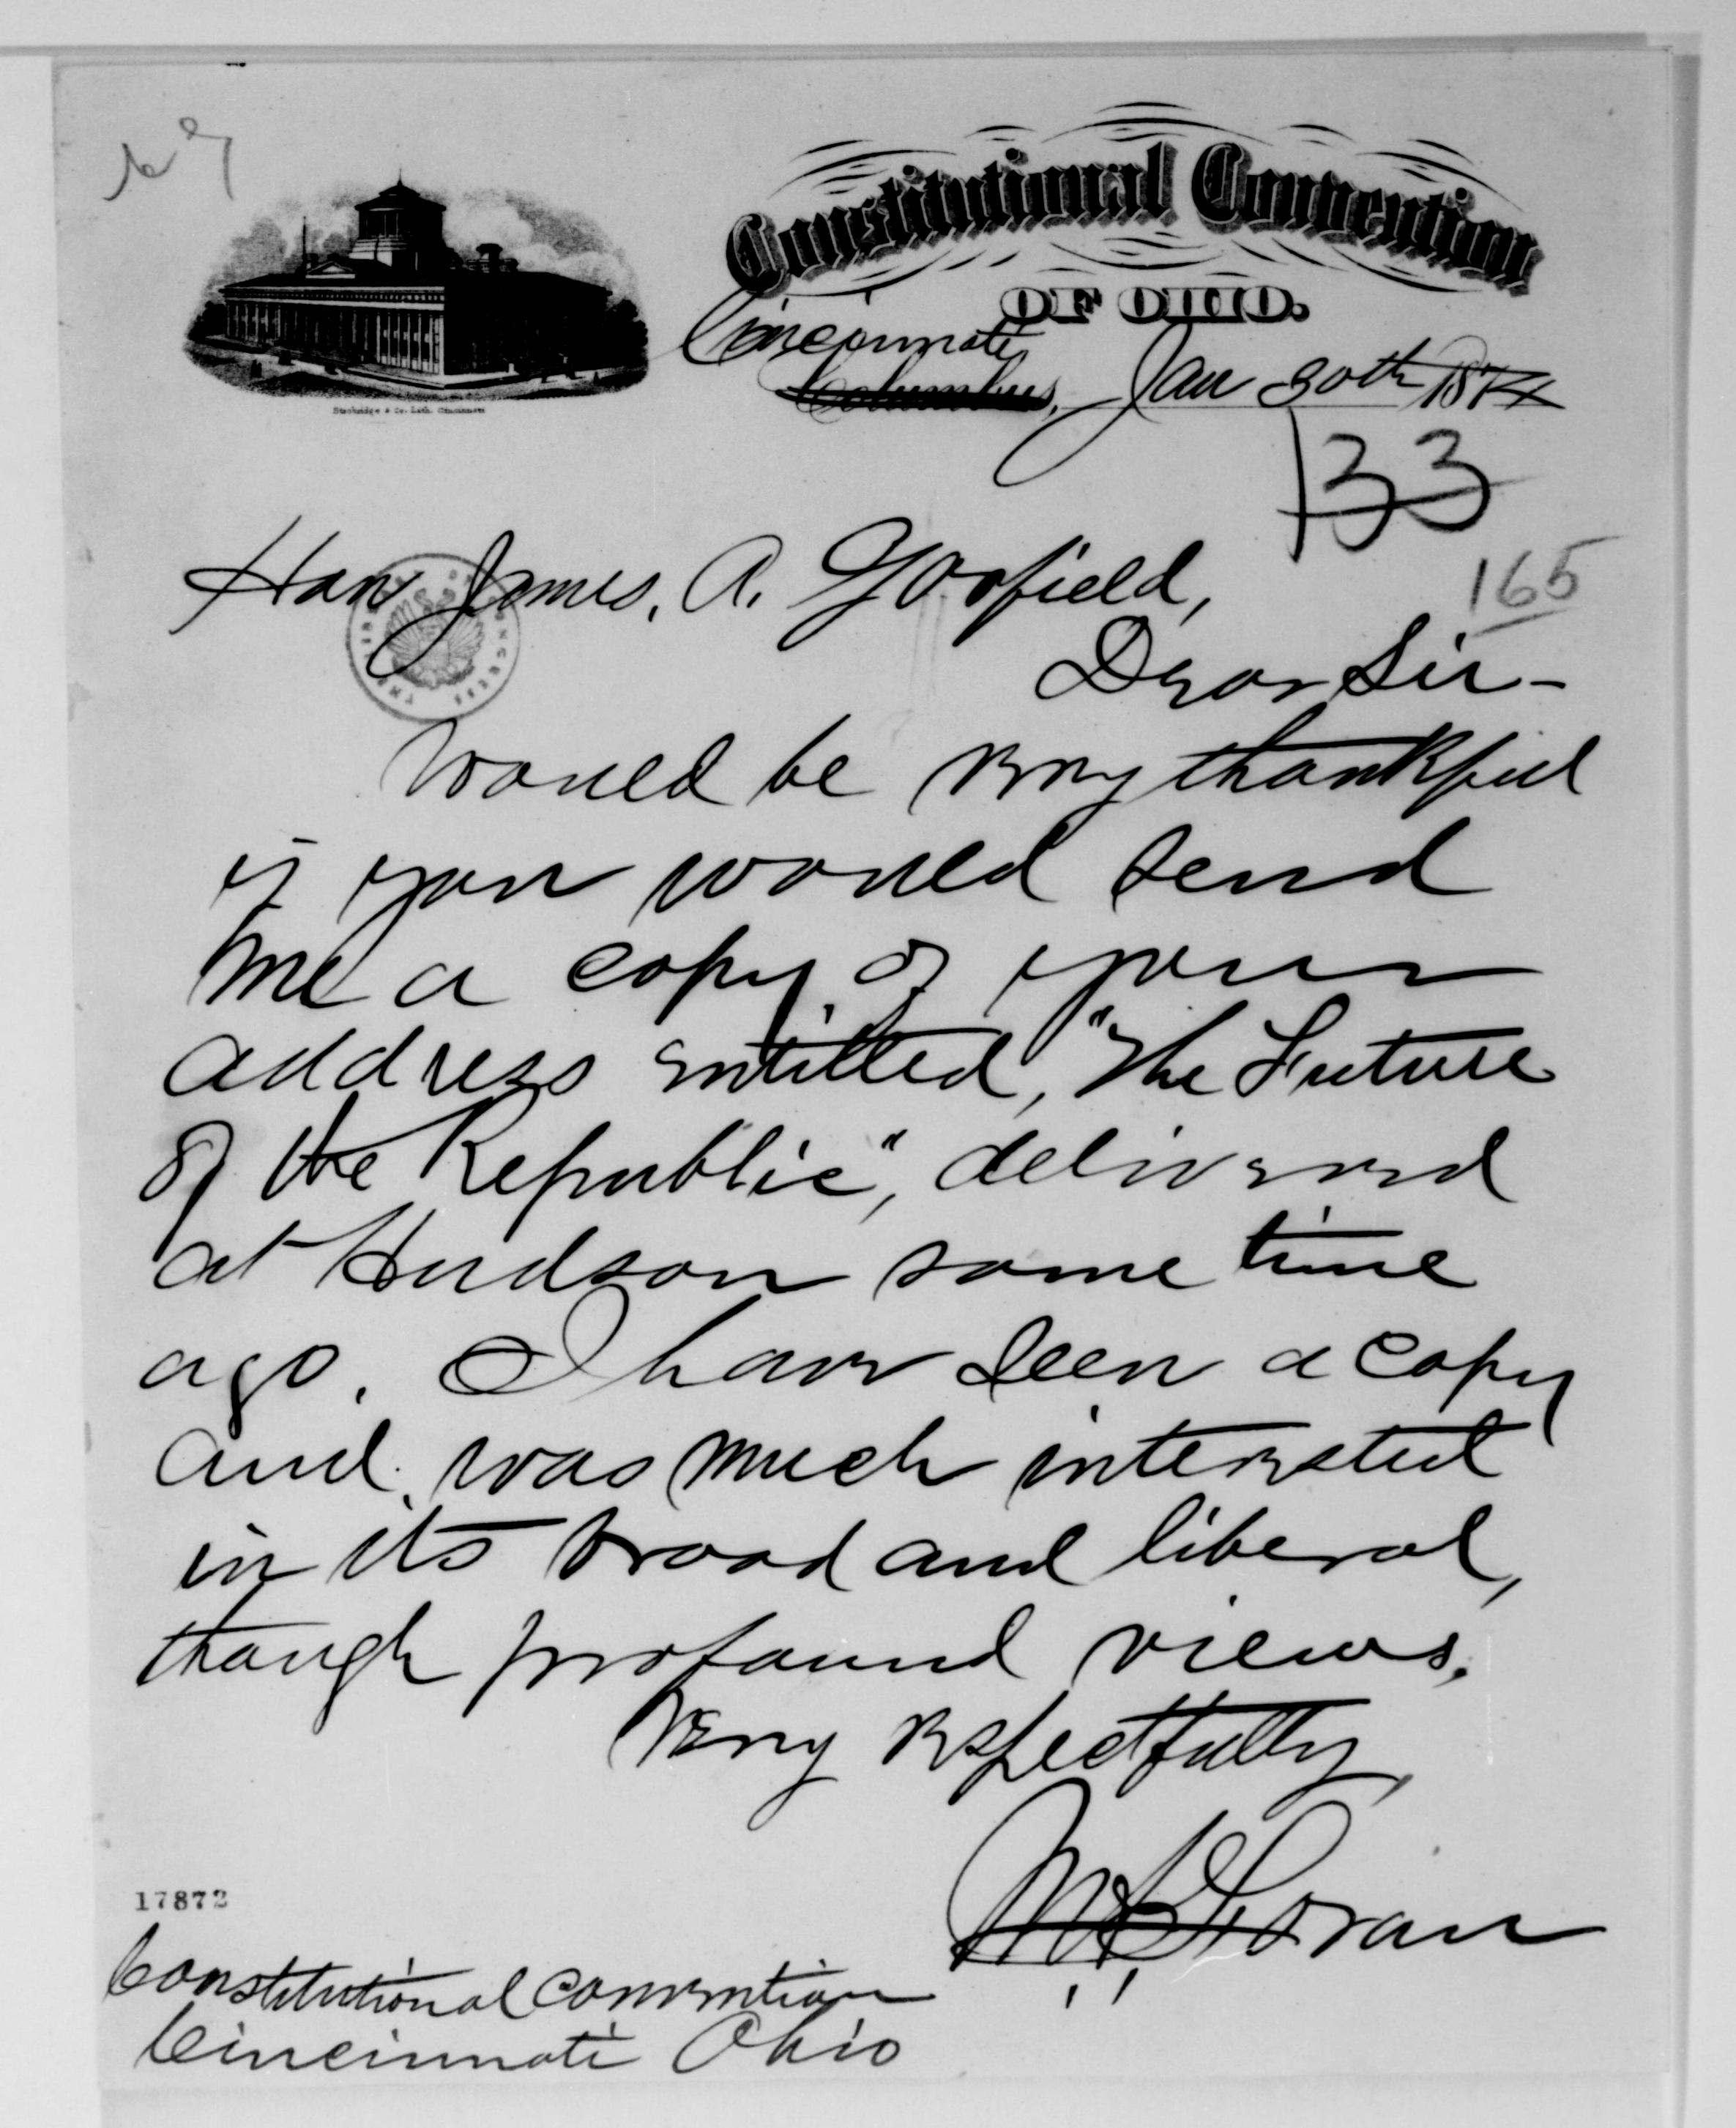 Constitutional Convention
OF OHIO.
Cincinnati
Columbus, Jan 30th 1874
133
165
Hon James. A. Garfield,
Dear Sir-
Would be very thankful
if you would send
me a copy of your
address entitled, "The Future
of the Republic", delivered
at Hudson some time
ago. I have seen a copy
and was much interested
in its broad and liberal,
though profound views.
Very respectfully,
17872
Constitutional Convention
Cincinnati Ohio